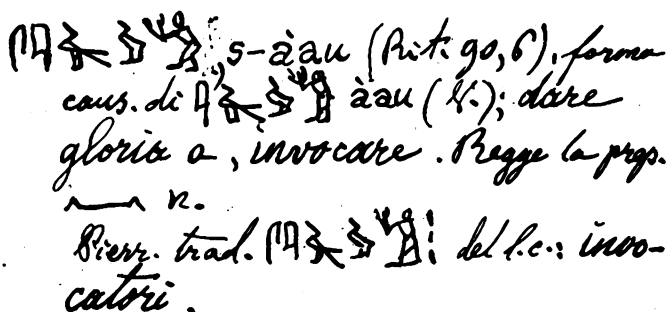 s-àau (Rit. 90, 6), forma
caus. di àau (V.); dare
gloria a, invocare. Regge la prep.
𓈖 n.
Pierr. trad. del l.c.: invo-
catori.